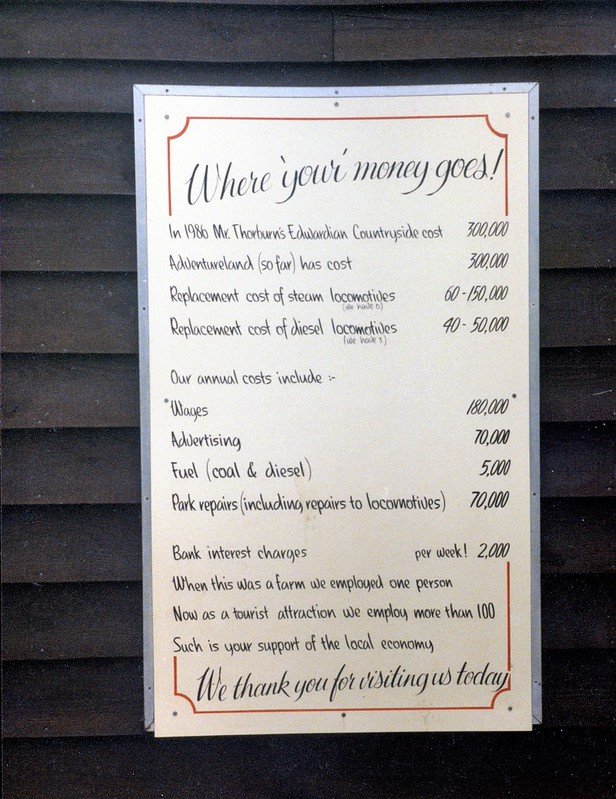 Where 'your' money goes!
In 1986 Mr. Thorburn's Edwardian Countryside cost 300,000
Adventureland (so far) has cost 300,000
Replacement cost of steam locomotives 60 - 150,000
(we have 6)
Replacement cost of diesel locomotives 40 - 50,000
(we have 3)
Our annual costs include :-
Wages 180,000
Advertising 70,000
Fuel (coal & diesel) 5,000
Park repairs (including repairs to locomotives) 70,000
Bank interest charges per week! 2,000
When this was a farm we employed one person
Now as a tourist attraction we employ more than 100
Such is your support of the local economy
We thank you for visiting us today